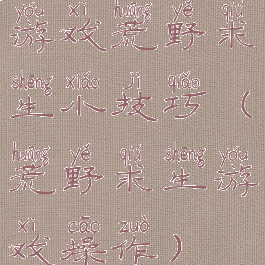 yóu xì huāng yě qiú
游戏荒野求
shēng xiǎo jì qiǎo
生小技巧（
huāng yě qiú shēng yóu
荒野求生游
xì cāo zuò
戏操作）